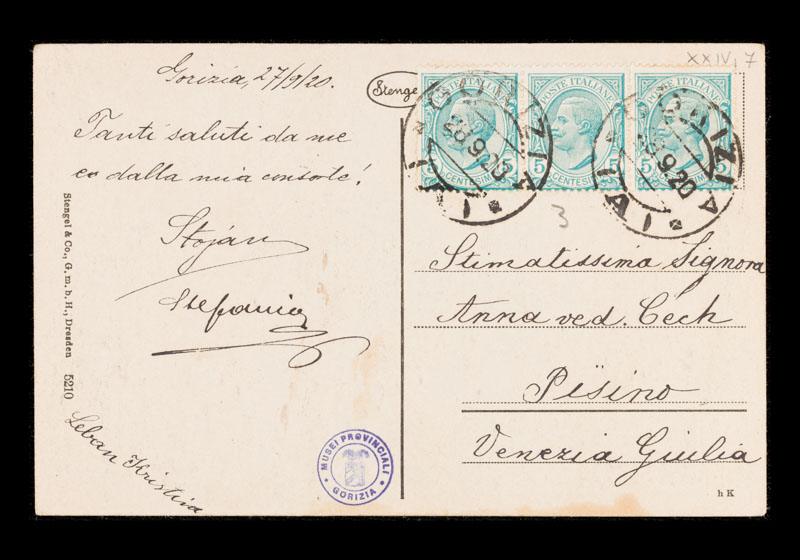 XXIV, 7
Gorizia, 27/9/20.
Tanti saluti da me
e dalla mia consorte!
Stojan
Stefania
Leban Kristina
Stengel & Co., G. m. b. H., Dresden 5210
Stenge
POSTE ITALIANE
5 CENTESIMI 5
POSTE ITALIANE
5 CENTESIMI 5
POSTE ITALIANE
5 CENTESIMI 5
GORIZIA
28.9.20
GORIZIA
28.9.20
3
Stimatissima Signora
Anna ved. Cech
Pisino
Venezia Giulia
MUSEI PROVINCIALI
GORIZIA
h K